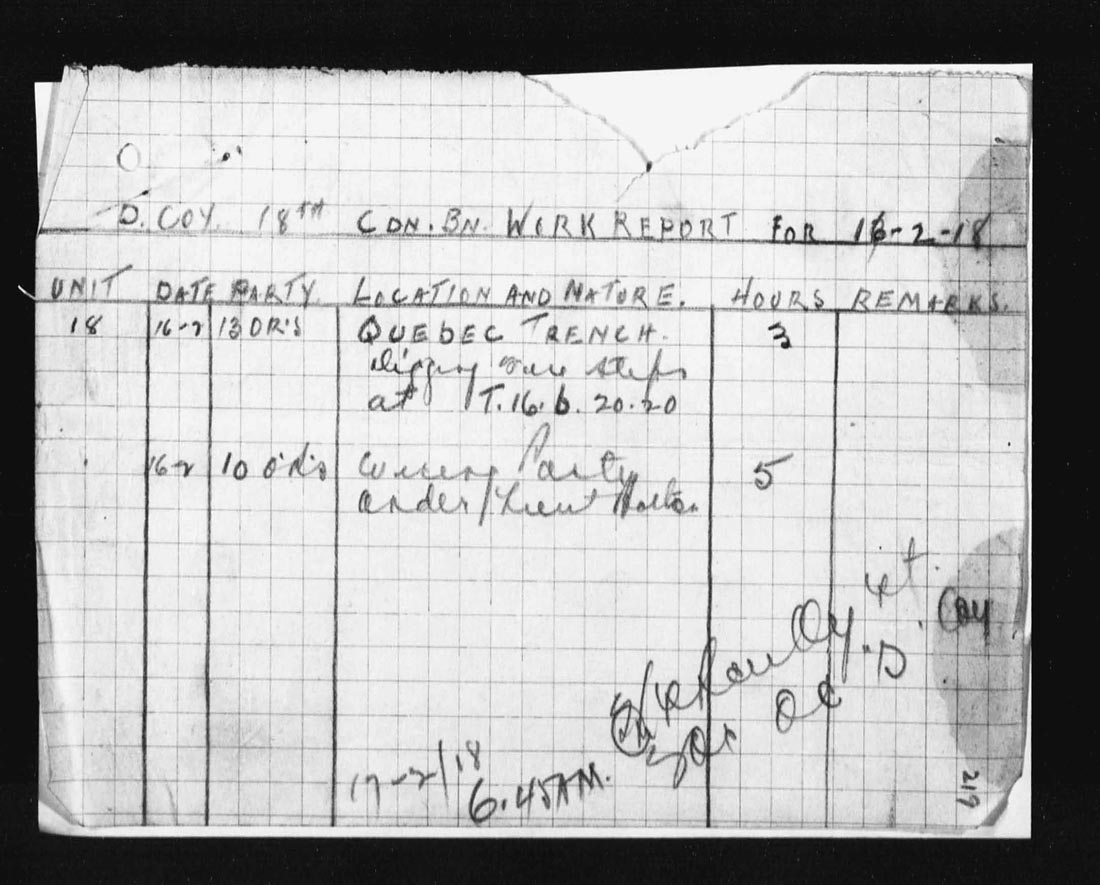 D. COY. 18TH CDN. BN. WORK REPORT FOR 16-2-18
UNIT DATE PARTY LOCATION AND NATURE. HOURS REMARKS.
18 16-2 13 OR'S QUEBEC TRENCH. 3
Digging fire steps
at T.16.b.20.20
16-2 10 OR's Party 5
under Lieut
Lt.
for OC D Coy
17-2/18
6.45AM.
219